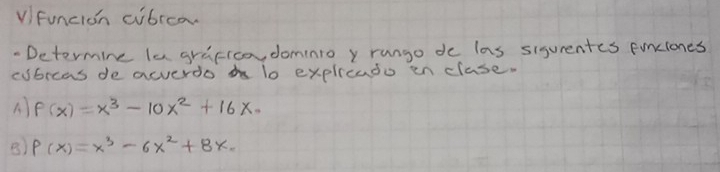 V) Función cúbica.
- Determine la gráfica, dominio y rango de las siguientes funciones
cúbicas de acuerdo a lo explicado en clase.
A) f(x) = x³ - 10x² + 16x.
B) f(x) = x³ - 6x² + 8x.